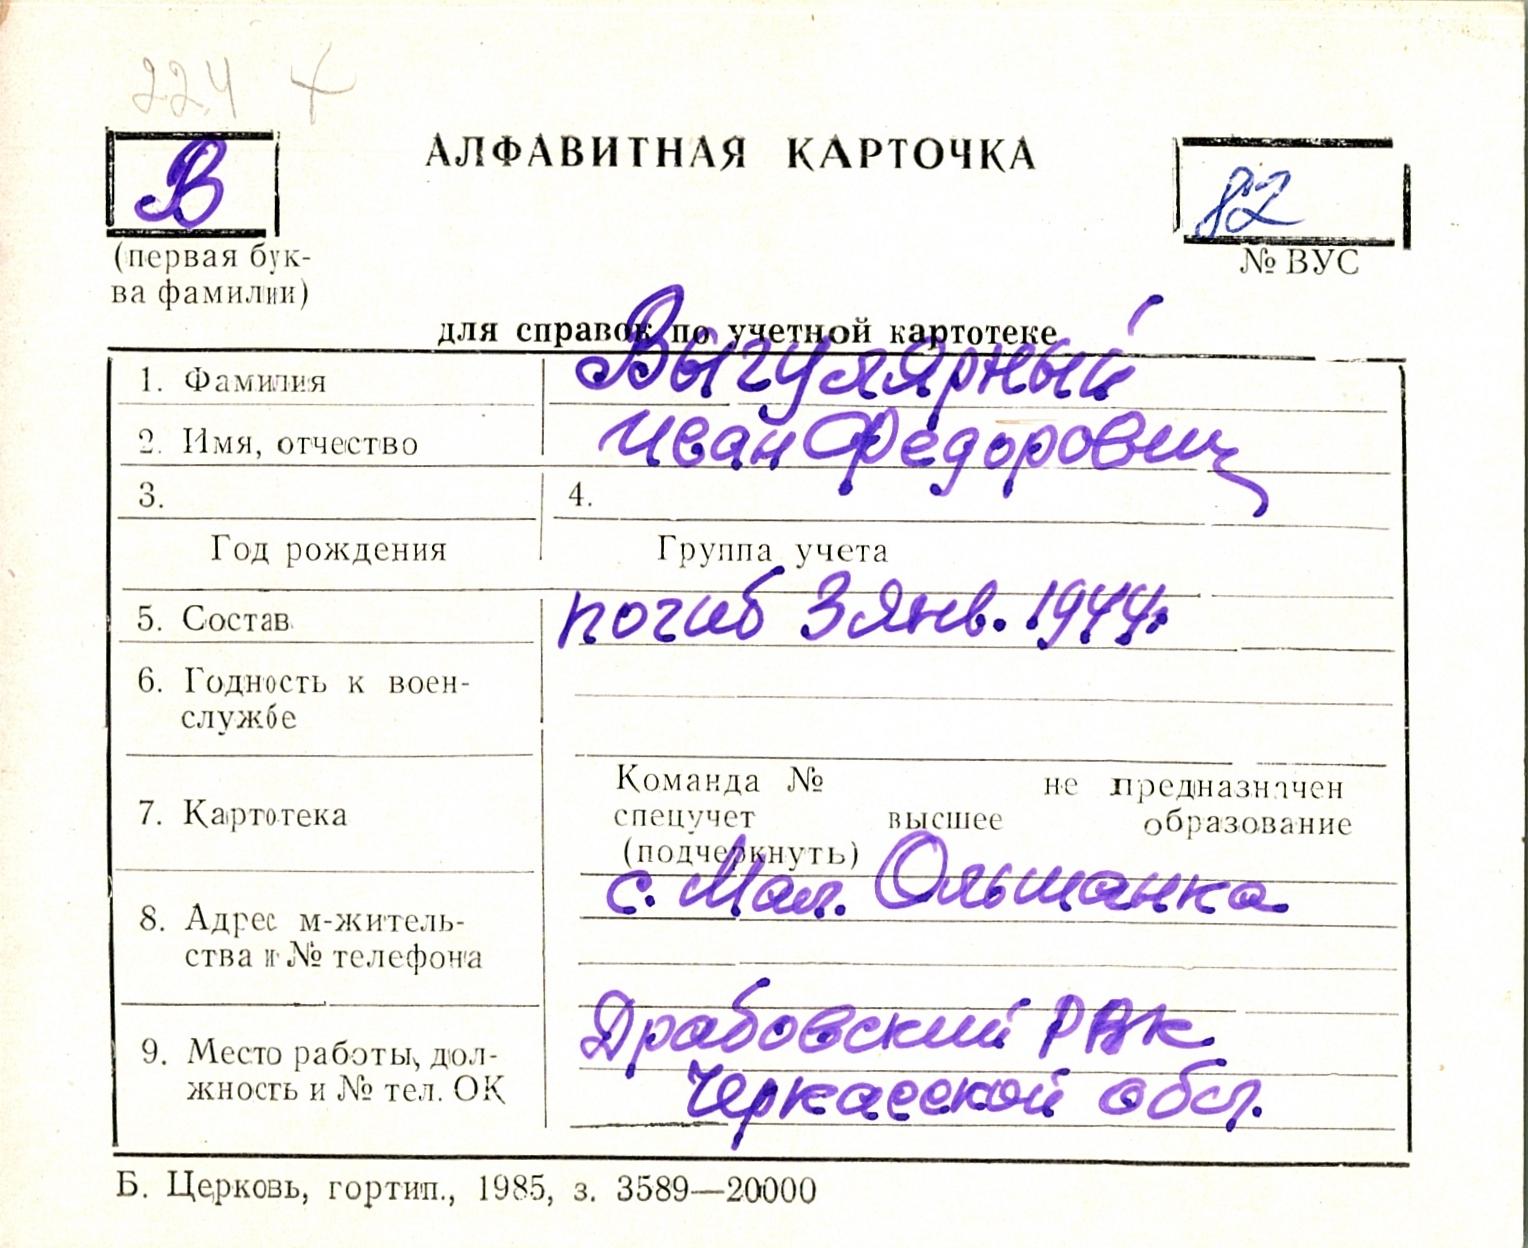 224 +
В
АЛФАВИТНАЯ КАРТОЧКА
82
(первая бук-
ва фамилии)
№ ВУС
для справок по учетной картотеке
1. Фамилия Выгулярный
2. Имя, отчество Иван Федорович
3. 4.
Год рождения Группа учета
5. Состав погиб 3 янв. 1944г
6. Годность к воен-
службе
7. Картотека
Команда № не предназначен
спецучет высшее образование
(подчеркнуть)
8. Адрес м-житель-
ства и № телефона
с. Мал. Ольшанка
9. Место работы, дол-
жность и № тел. ОК
Драбовский РВК
Черкасской обл.
Б. Церковь, гортип., 1985, з. 3589—20000